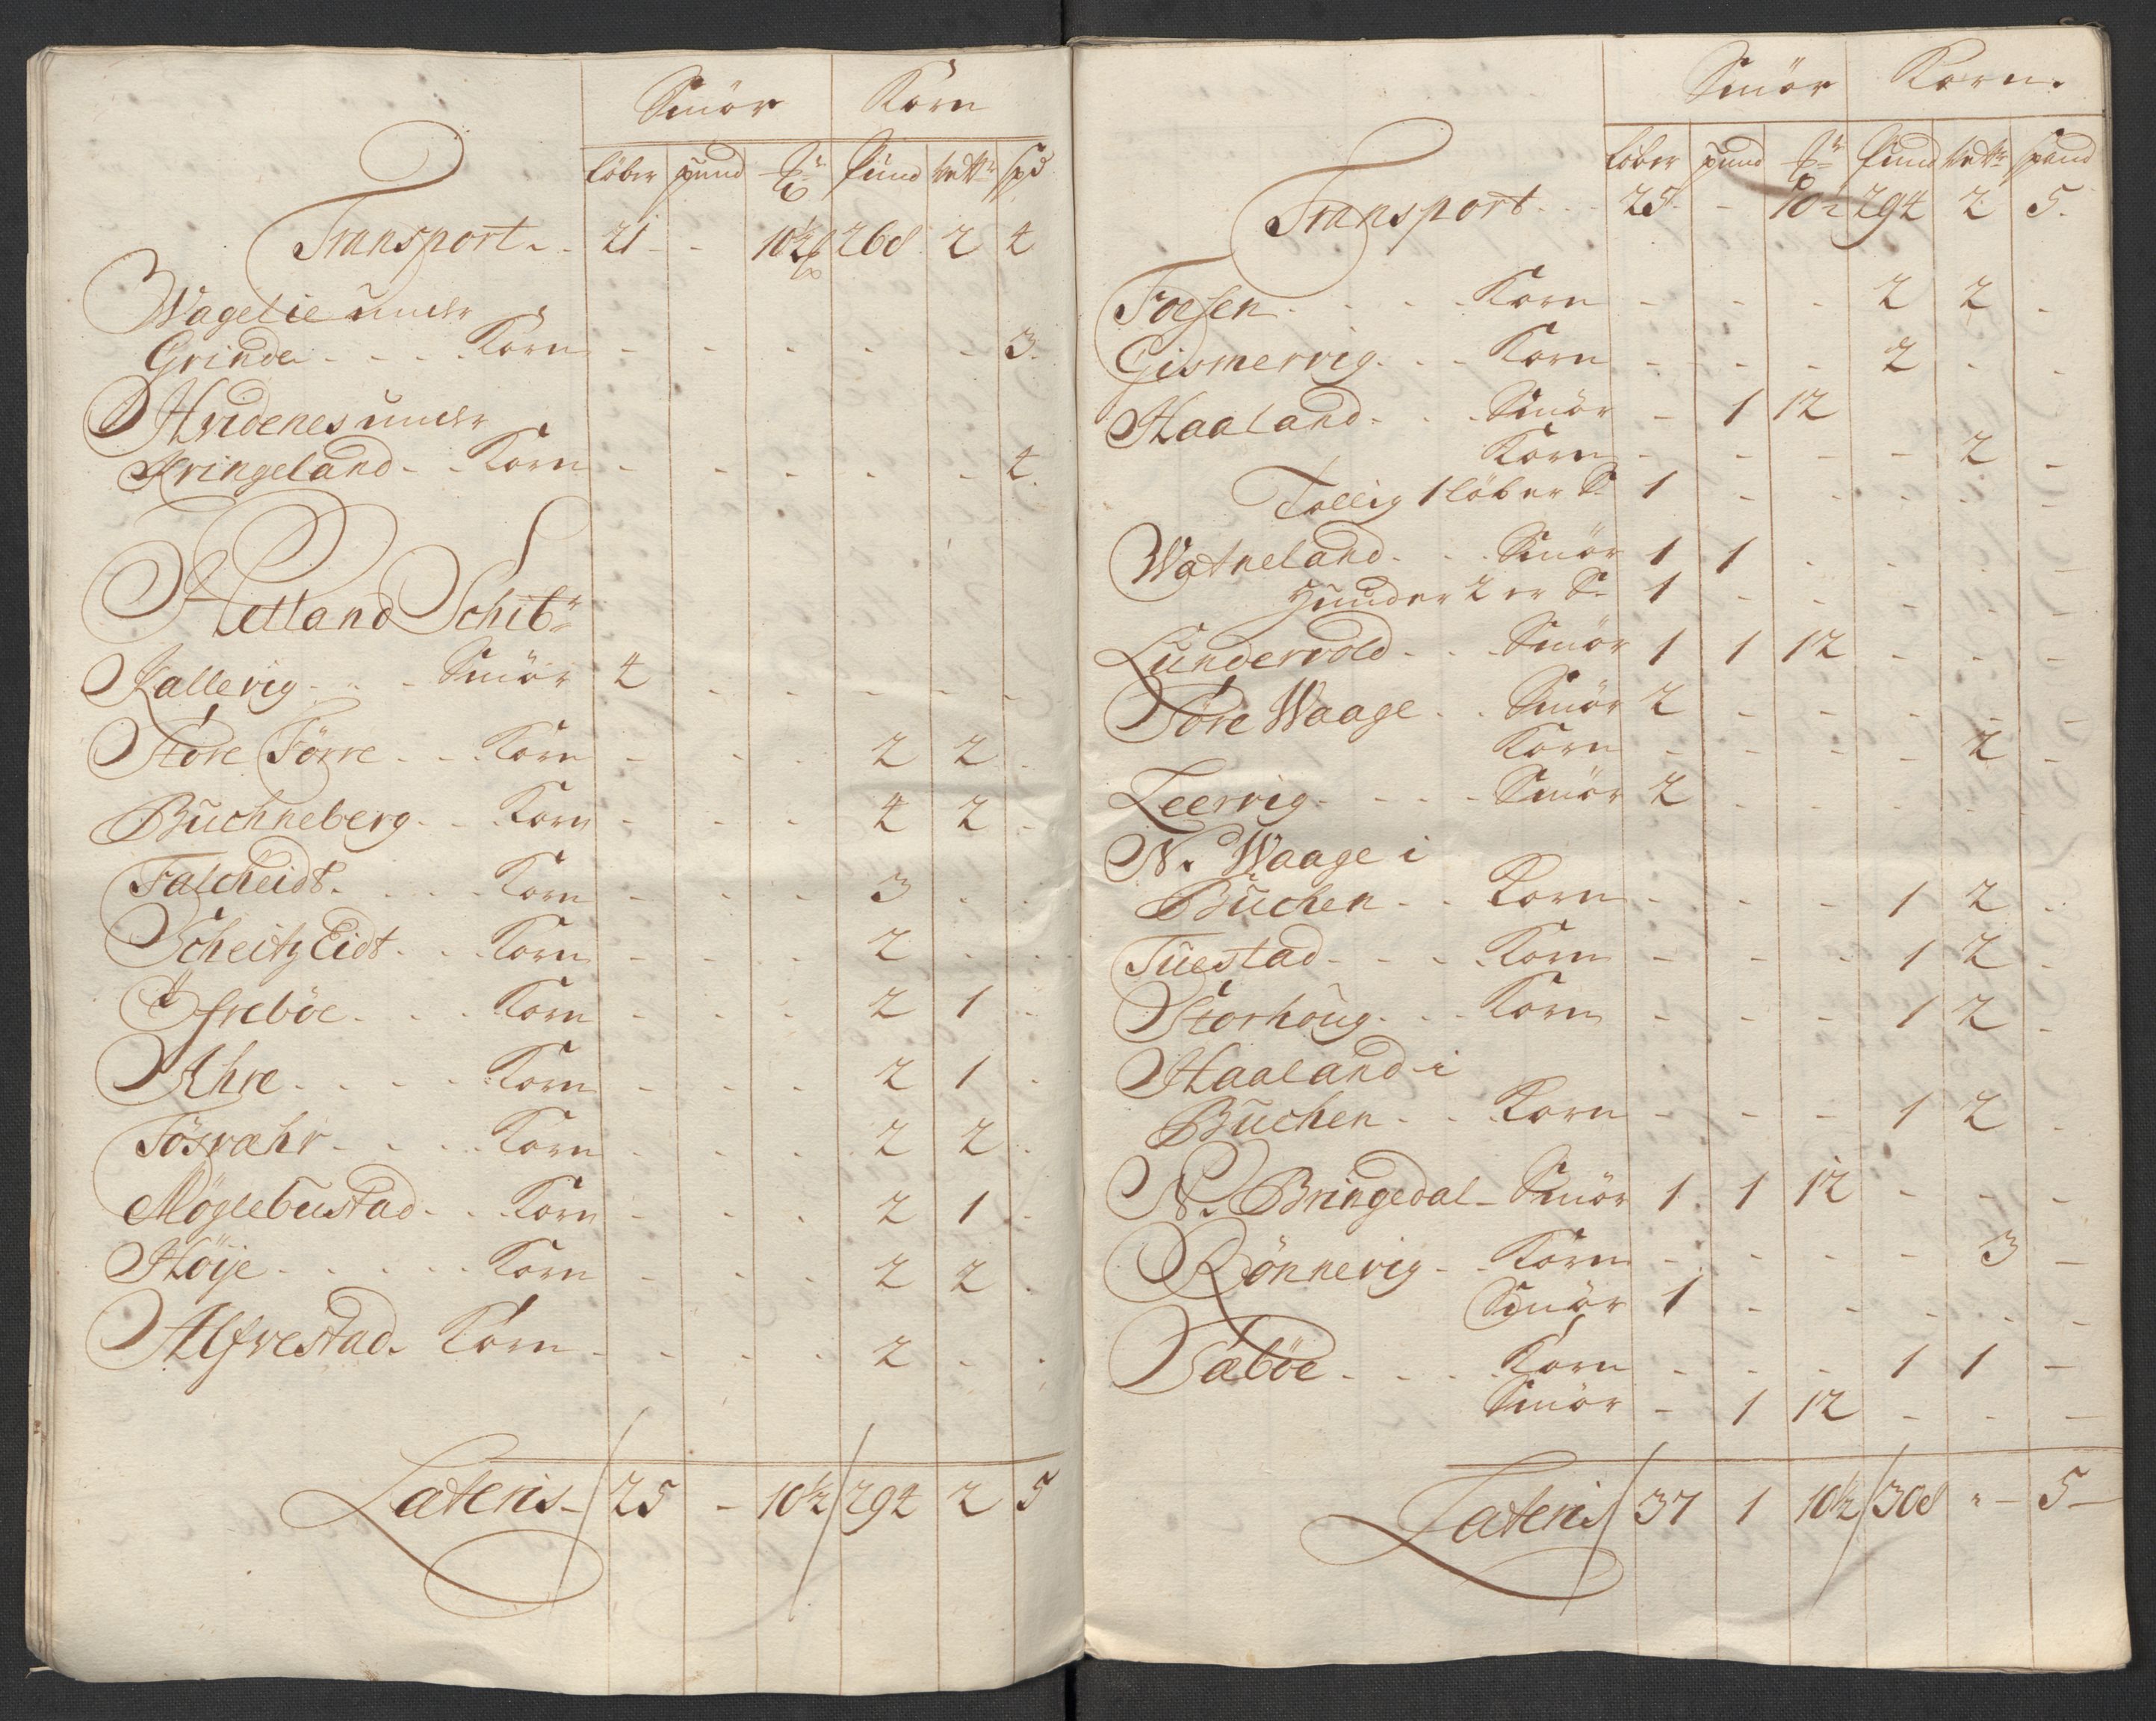 Smör Korn
löber pund pund vett spd
Transport 21 - 10½ 268 2 4
Wagelie under
Grinde Korn - - - - - 3
Hvidenes under
Kringeland Korn - - - - - 4
Hetland Schib
Kallevig Smör 4 - - - - -
Store Förre Korn - - - 2 2 -
Buchneberg Korn - - - 4 2 -
Falcheidt Korn - - - 3 - -
Scheitz Eidt Korn - - - 2 - -
Øfrebøe Korn - - - 2 1 -
Ahre Korn - - - 2 1 -
Fosvahr Korn - - - 2 2 -
Møglebustad Korn - - - 2 1 -
Høije Korn - - - 2 2 -
Alfvestad Korn - - - 2 - -
Lateris 25 - 10½ 294 2 5
Smör Korn
löber pund pund vett spand
Transport 25 - 10½ 294 2 5
Foesen Korn - - - 2 2 -
Gismervig Korn - - - 2 - -
Haaland Smör - 1 12
Korn - - - - 2 -
1 löber S 1 - - - - -
Watneland Smör 1 1 - - - -
1 - - - - -
Lundervold Smör 1 1 12 - - -
Søre Waage Smör 2 - - - - -
Korn - - - - 2 -
Leervig Smör 2 - - - -
N. Waage i
Buchen Korn - - - 1 2 -
Tuestad Korn - - - 1 2 -
Storhoug Korn - - - 1 2 -
Haaland i
Buchen Korn - - - 1 2 -
N. Bringedal Smör 1 1 12 - - -
Rönnevig Korn - - - - 3 -
Smör 1 - - - - -
Sæbøe Korn - - - 1 1 -
Smör - 1 12 - - -
Lateris 37 1 10½ 308 - 5